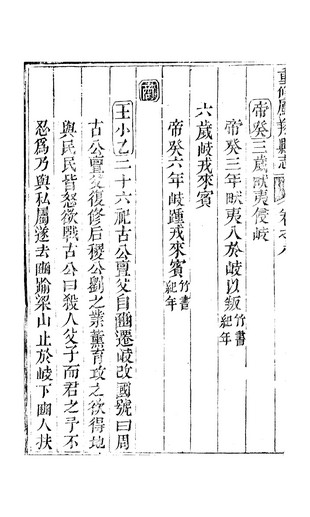 重修鳳翔縣志 卷之八
帝癸三歲畎夷侵岐
帝癸三年畎夷入於岐以叛竹書紀年
六歲岐戎來賓
帝癸六年岐踵戎來賓竹書紀年
商
王小乙二十六祀古公亶父自豳遷岐改國號曰周
古公亶父復修后稷公劉之業薰育攻之欲得地
與民民皆怒欲戰古公曰殺人父子而君之予不
忍為乃與私屬遂去豳踰梁山止於岐下豳人扶